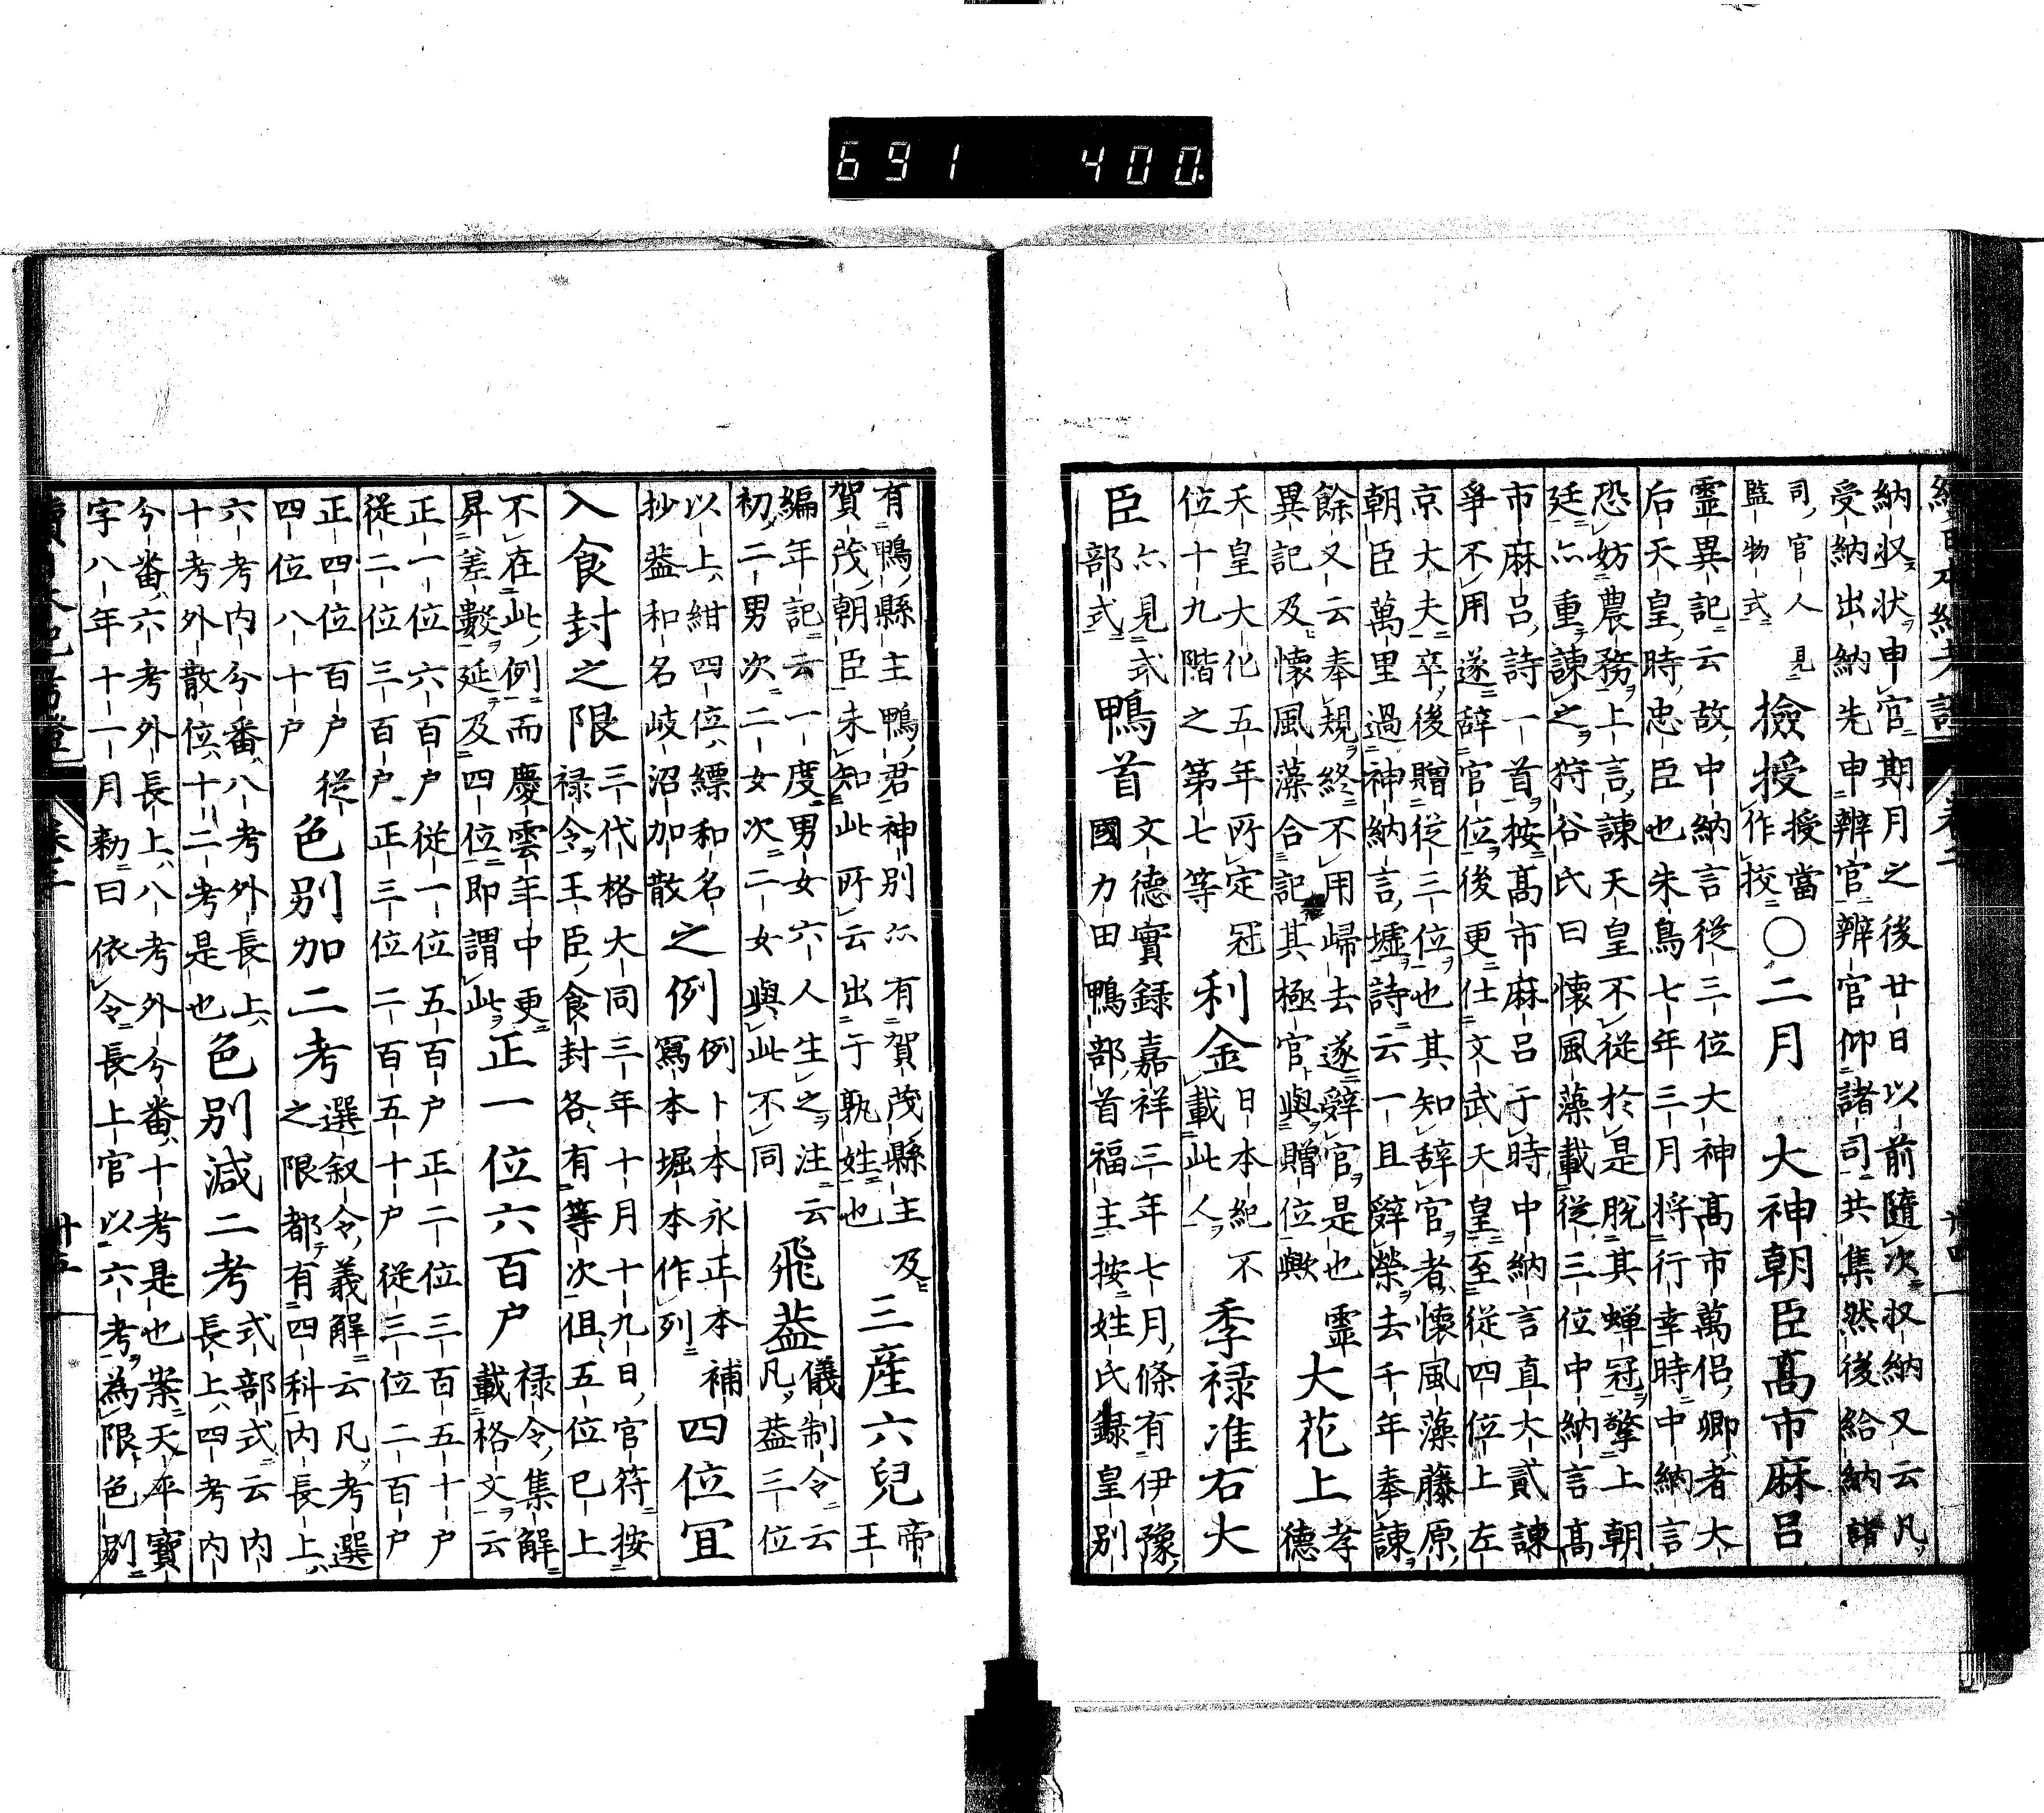 691 400.
納収状申官期月之後廿日以前隨次収納又云凡
受納出納先申辨官辨官仰諸司共集然後給納諸
司官人見
監物式
撿授授當
作挍
〇二月 大神朝臣髙市麻呂
靈異記云故中納言從三位大神髙市萬侶卿者大
后天皇時忠臣也朱鳥七年三月将行幸時中納言
恐妨農務上言諫天皇不従於是脱其蝉冠擎上朝
廷亦重諫之狩谷氏曰懷風藻載従三位中納言髙
市麻呂詩一首按髙市麻呂于時中納言直大貳諫
爭不用遂辞官位後更仕文武天皇至従四位上左
京大夫卒後贈従三位也其知辞官者懐風藻藤原
朝臣萬里過神納言墟詩云一旦辤榮去千年奉諫
餘又云奉規終不用帰去遂辤官是也
異記及懷風藻合記其極官與贈位歟
靈
大花上
孝
德
天皇大化五年所定冠
位十九階之第七等
利金
日本紀不
載此人
季禄准右大
臣
亦見式
部式
鴨首
文德實録嘉祥三年七月條有伊豫
國力田鴨部首福主按姓氏録皇別
有鴨縣主鴨君神別亦有賀茂縣主及
賀茂朝臣未知此所云出于孰姓也
三産六兒
帝
王
編年記云一度男女六人生之注云
初二男次二女次二女與此不同
飛葢
儀制令云
凡葢三位
以上紺四位縹和名
抄葢和名岐沼加散
之例
例卜本永正本補
寫本堀本作列
四位冝
入食封之限
三代格大同三年十月十九日官符按
禄令王臣食封各有等次但五位已上
不在此例而慶雲年中更
昇差數延及四位即謂此
正一位六百户
禄令集解
載格文云
正一位六百户従一位五百户正二位三百五十户
従二位三百户正三位二百五十户従三位二百户
正四位百户従
四位八十户
色别加二考
選叙令義解云凡考選
之限都有四科内長上
六考内分番八考外長上
十考外散位十二考是也
色别減二考
式部式云内
長上四考内
分番六考外長上八考外分番十考是也案天平寶
字八年十一月勅曰依令長上官以六考為限色别